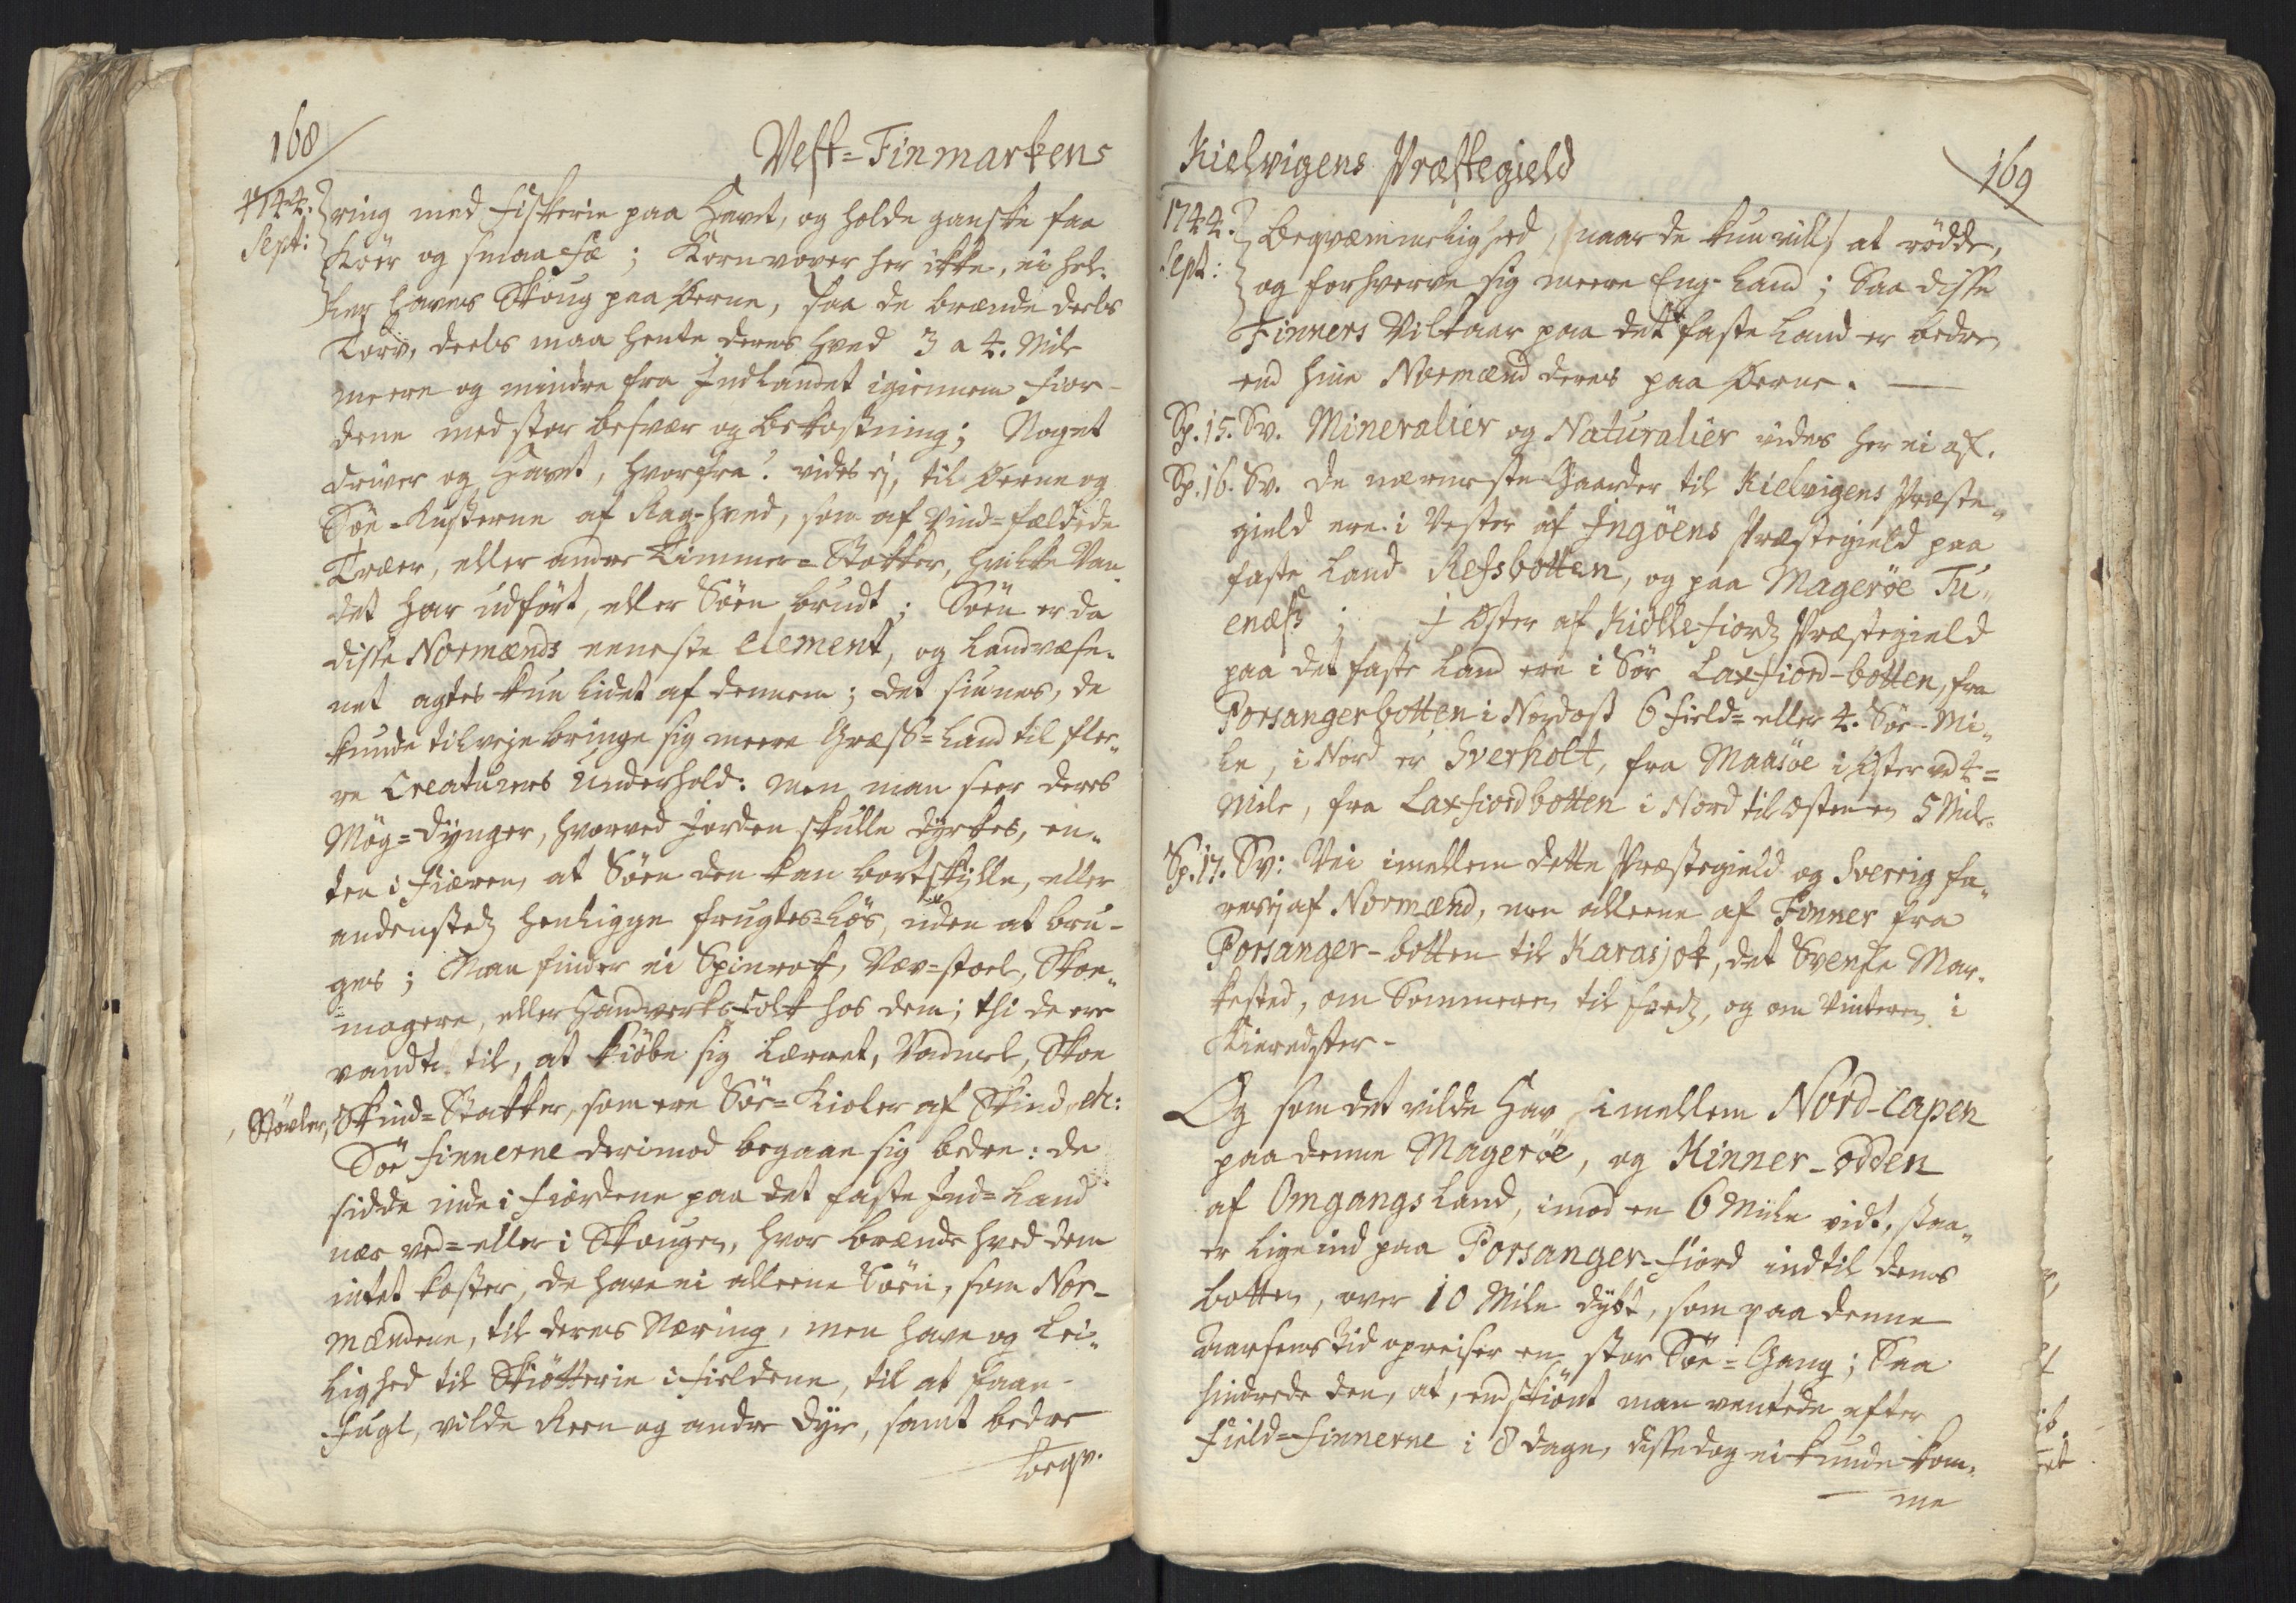 168
Vest=Finmarkens
1744.
Sept:
ring med Fiskerie paa Havet, og holde ganske faa
Köer og smaa Fæ; Korn voxer her ikke, ei hel-
ler haves Skoug paa Öerne, saa de brænde deels
Torv, deels maa hente deres hved 3 a 4. Mile
meere og mindre fra Indlandet igiennem Fior-
dene med stor besvær og bekostning; Noget
driver og Havet, hvorfra? vides ej, til Öerne og
Söe-Kusterne af Rag-hved, som af Vind=fældede
Træer, eller andre Timmer=Stokker, hvilke Van
det har udfört, eller Söen brudt; Söen er da
disse Normænds eeneste element, og Landvæse-
net agtes kun lidet af dennem; det siunes, de
kunde tilveje bringe sig meere Græss=Land til fler-
re Creaturers Underhold: men man seer deres
Mög=Dynger, hvorved Jorden skulle dyrkes, en-
ten i Fiæren, at Söen den kan bortskylle, eller
andenstedz henligge frugtes=lös, uden at bru-
ges; Man finder ei Spinrok, Væv=stoel, Skoe-
magere, eller Handverks Folk hos dem; thi de ere
vandte til, at kiöbe sig Lærret, Vadmel, Skoe
, Stövler, Skind=Stakker, som ere Söe=Kioler af Skind, etc:
Söe Finnerne derimod begaae sig bedre: de
sidde inde i Fiordene paa det faste Ind=Land
nær ved= eller i Skougen, hvor brænde hved dem
intet koster, de have ei alleene Söen, som Nor-
mændene, til deres Næring, men have og Lei-
lighed til Skiötterie i Fieldene, til at faae
Fugl, vilde Reen og andre Dyr, samt bedre
beqv.
Kielvigens Præstegield
169
1744.
Sept:
beqvæmmelighed, (naar de kun vill) at rödde,
og forhverve sig meere Eng-Land; Saa disse
Finners Vilkaar paa det faste Land er bedre,
end hine Normænd deres paa Öerne.
Sp. 15. Sv. Mineralier og Naturalier vides her ei af.
Sp. 16. Sv. De nærmeste Gaarder til Kielvigens Præste-
gield ere i Vester af Ingöens Præstegield paa
faste Land Refsbotten, og paa Mageröe Tu-
enæss; i Öster af Kiöllefiordz Præstegield
paa det faste Land ere i Sör Laxfiord-botten, fra
Porsangerbotten i Nordost 6 Field= eller 4. Söe-Mi-
le, i Nord er Sverholt, fra Maasöe i Öster ved 4=
Mile, fra Laxfiordbotten i Nord til Östen en 5 Mile.
Sp. 17. Sv: Vei imellem dette Præstegield og Sverrig fa-
res ej af Normænd, men alleene af Finner fra
Porsanger-botten til Karasjok, det Svenske Mar-
kested, om Sommeren til Fodz, og om Vinteren i
Kieredzler-
Og som det vilde Hav imellem Nord-Capen
paa denne Mageröe, og Kinner-odden
af Omgangs Land, imod en 6 Mile vidt, staa-
er lige ind paa Porsanger-Fiord indtil dens
botten, over 10 Mile dybt, som paa denne
Aarsens tid opreiser en stor Söe=Gang; Saa
hindrede den, at, endskiönt man ventede efter
Field=Finnerne i 8 dage, disse dog ei kunde kom-
me